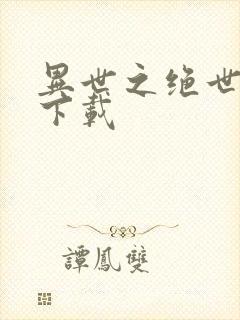 異世之绝世
下載
譚鳳雙